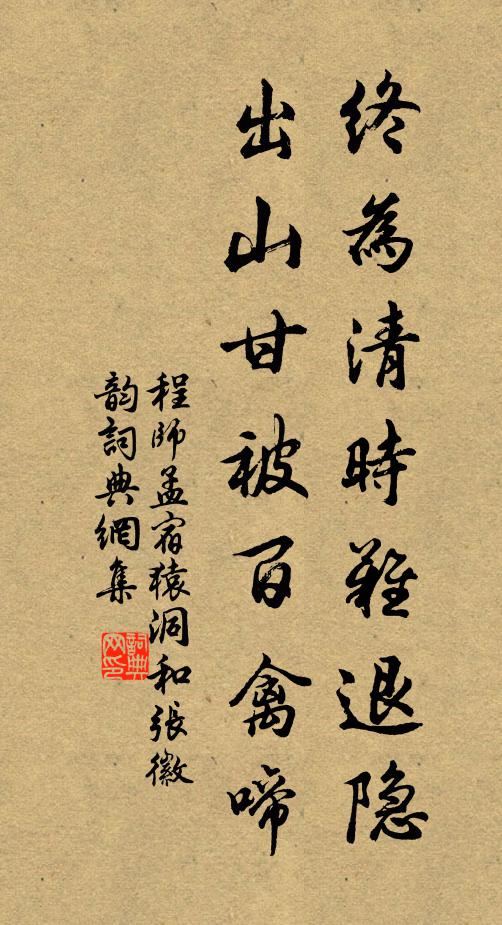 終為清時難退隐
出山甘被百禽啼
程師孟宿猿洞和張徽
韵詞典網集
詞典網印